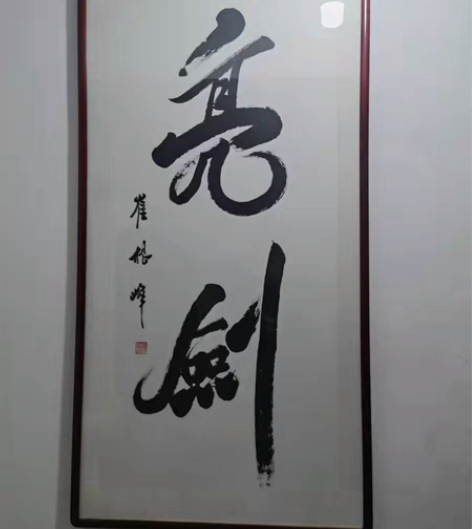 亮剑
崔根峰